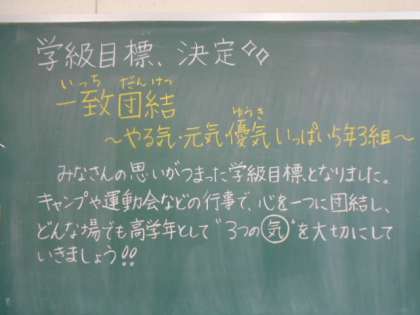 学級目標、決定◇◇
いっち だんけつ
一致団結
ゆうき
～やる気・元気・優気いっぱい5年3組～
みなさんの思いがつまった学級目標となりました。
キャンプや運動会などの行事で、心を一つに団結し、
どんな場でも高学年として"3つの気"を大切にして
いきましょう!!